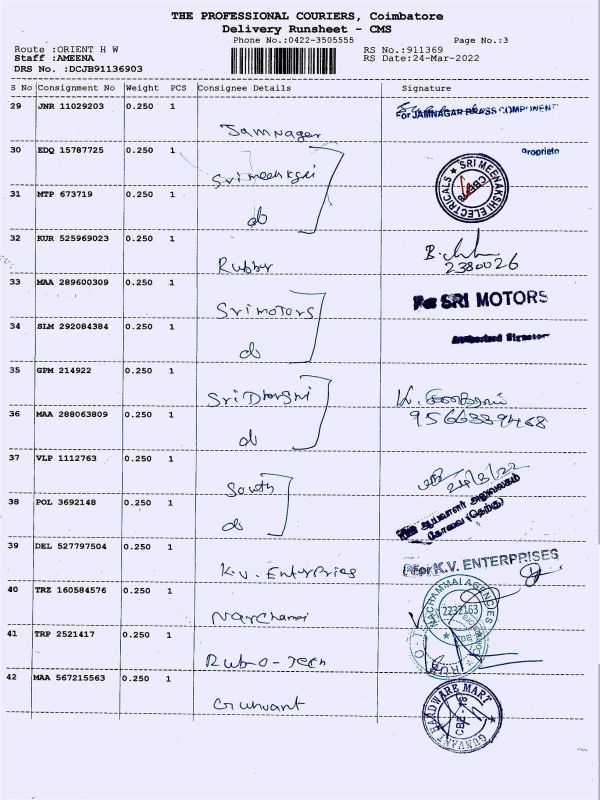 THE PROFESSIONAL COURIERS, Coimbatore
Delivery Runsheet - CMS
Phone No.:0422-3505555 Page No.:3
Route :ORIENT H W RS No.:911369
Staff :AMEENA RS Date:24-Mar-2022
DRS No. :DCJB91136903
S No Consignment No Weight PCS Consignee Details Signature
29 JNR 11029203 0.250 1 Jamnagar For JAMNAGAR BRASS COMPONENT
Proprieto
30 EDQ 15787725 0.250 1 Srimeenkshi SRI MEENAKSHI ELECTRICALS
31 MTP 673719 0.250 1 do
32 KUR 525969023 0.250 1 Rubber 2380026
33 MAA 289600309 0.250 1 Sri motors For SRI MOTORS
34 SLM 292084384 0.250 1 do Authorised Signator
35 GPM 214922 0.250 1 Sri Dharshni
36 MAA 288063809 0.250 1 do 9566339468
37 VLP 1112763 0.250 1 South 24/3/22
38 POL 3692148 0.250 1 do
39 DEL 527797504 0.250 1 K.V. Enterpries For K.V. ENTERPRISES
40 TRZ 160584576 0.250 1 Nachammai NACHAMMAI AGENCIES 2232163
41 TRP 2521417 0.250 1 Rub-O-Tech
42 MAA 567215563 0.250 1 Gunvant GUNVANT HARDWARE MART